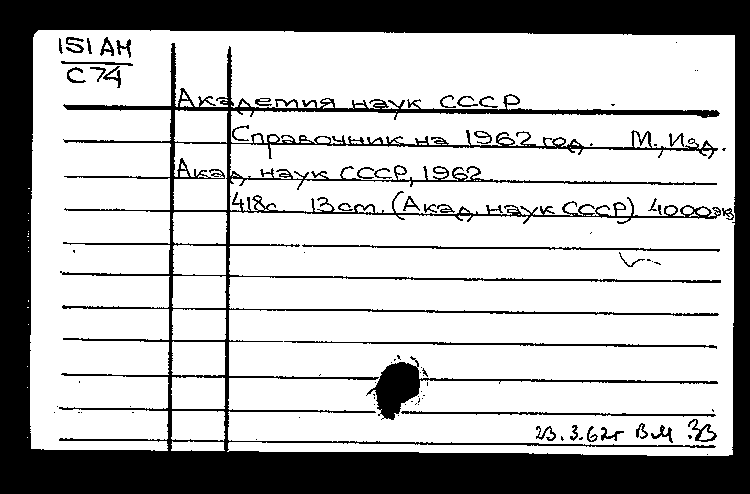 151 АН
С 74
Академия наук СССР
Справочник на 1962 год. М., Изд.
Акад. наук СССР, 1962
418с 13 cm. (Акад. наук СССР) 4000 экз
23.3.62г В.М ЗВ